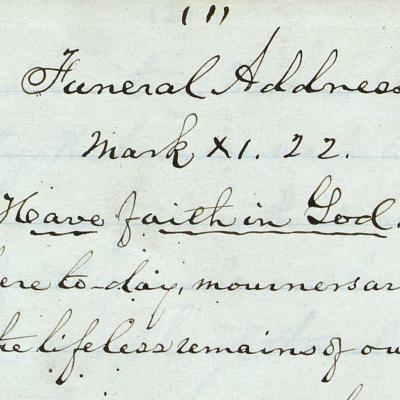 (1)
Funeral Address
Mark XI. 22.
Have faith in God.
ere to-day, mourners ar
the lifeless remains of ou